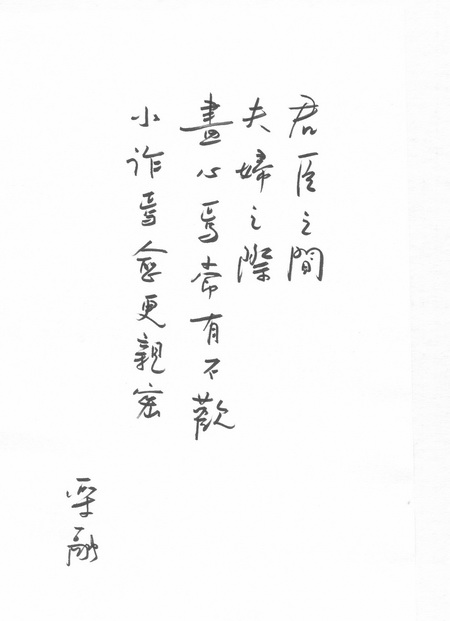 君臣之間
夫婦之際
盡心焉常有不歡
小詐焉愈更親密